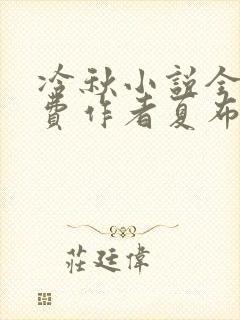 冷秋小說全
費作者夏布
莊廷偉